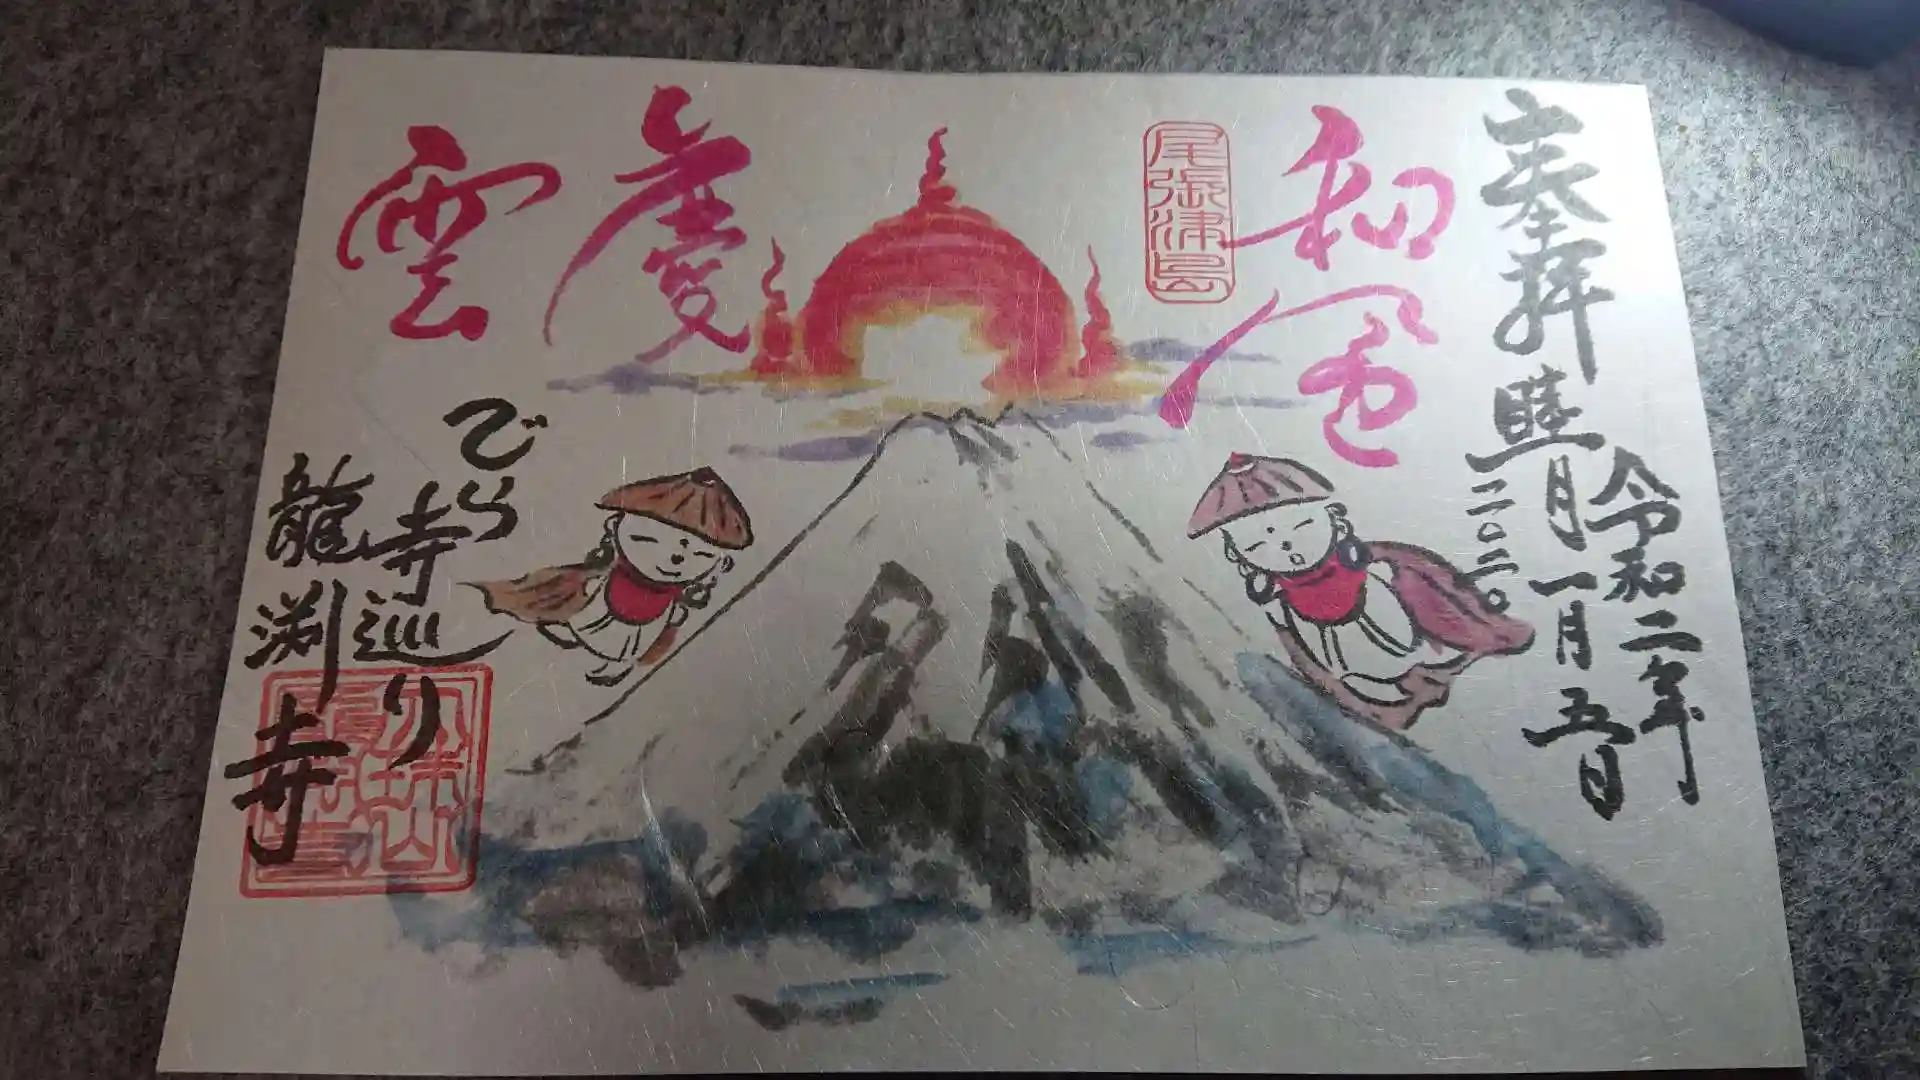 奉拝
令和二年
睦月一月五日
二〇二〇
和風
尾張津島
慶
雲
でら
寺巡り
龍渕寺